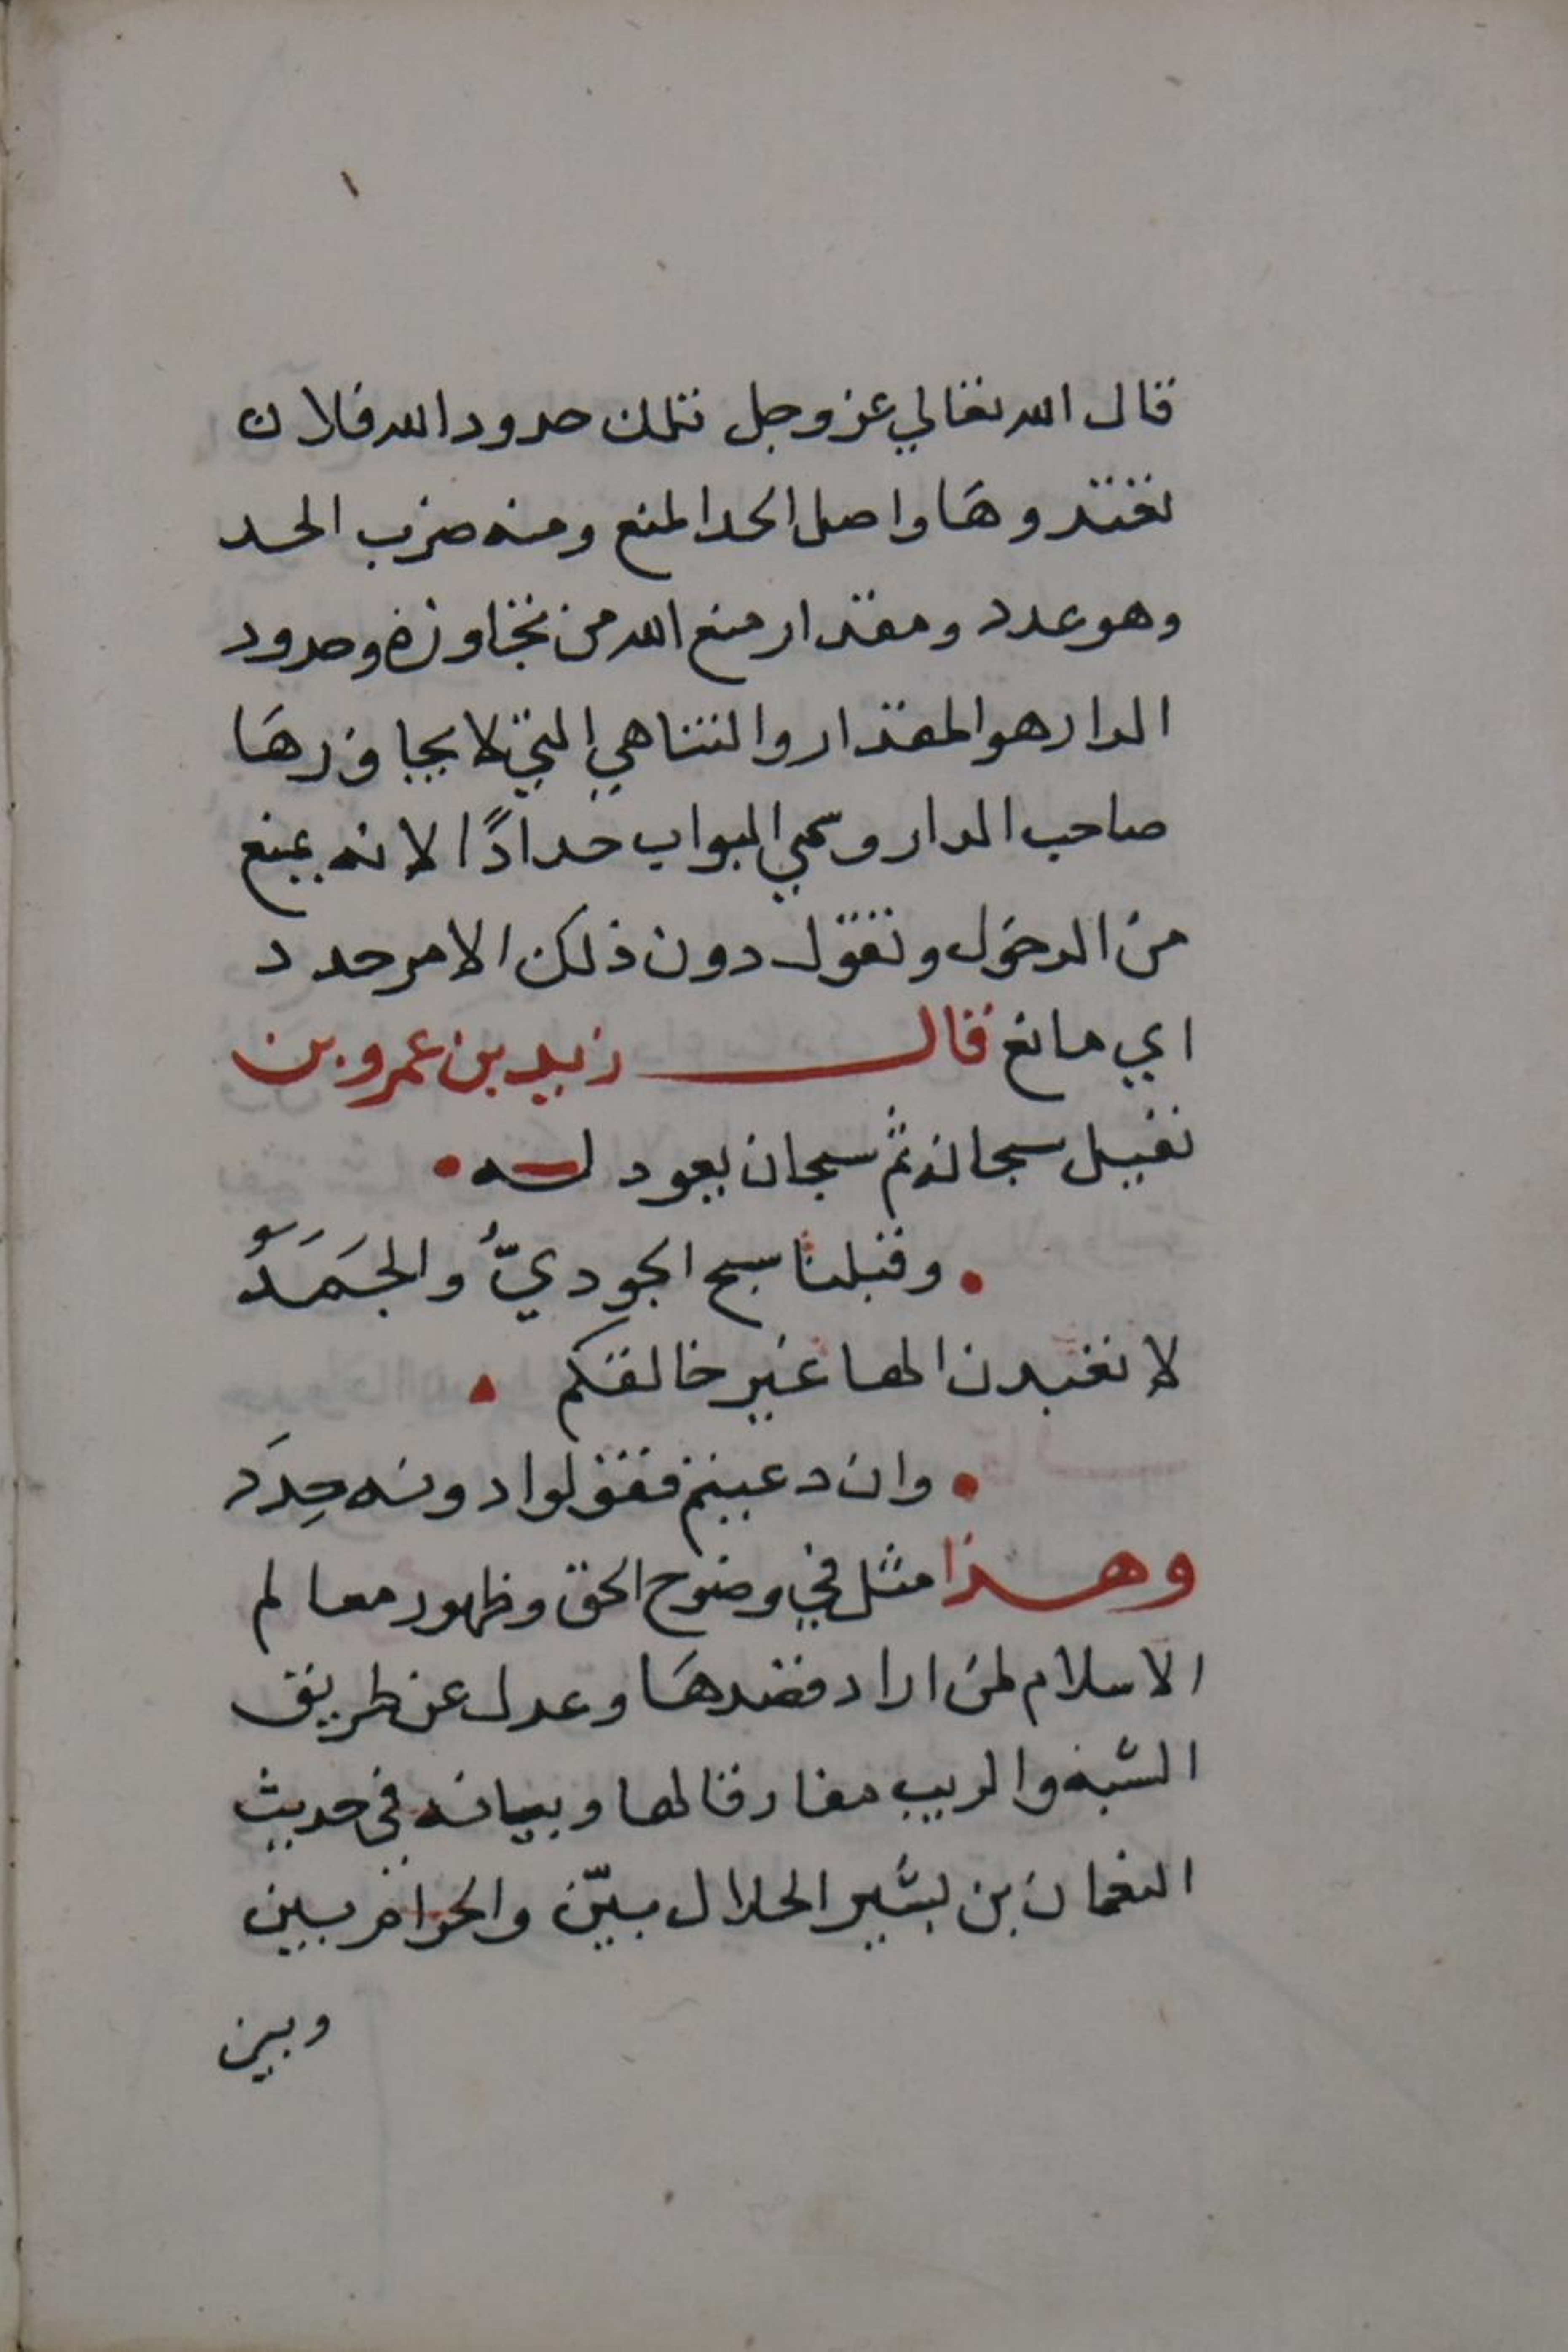 قال الله تعالي عز وجل تلك حدود الله فلا ن
تعتدوها واصل الحد المنع ومنه ضرب الحد
وهو عدد ومقدار منع الله من تجاوزه وحدود
الدار هو المقدار والتناهي التي لا يجاوزها
صاحب الدار وسمي البواب حدادًا لانه يمنع
من الدخول وتقول دون ذلك الامر حدد
اي مانع قال زيد بن عمرو بن
نفيل سبحانه ثم سبحان يعود له
وقبلنا سبح الجوديُّ والجَمَدُ
لا تعبدن الها غير خالقكم
وان دعيتم فقولوا دونه حِدَد
وهذا مثل في وضوح الحق وظهور معالم
الاسلام لمن اراد قصدها وعدل عن طريق
الشبه والريب مفارقا لها وبيانه في حديث
النعمان بن بشير الحلال بيّن والحرام بين
وبين